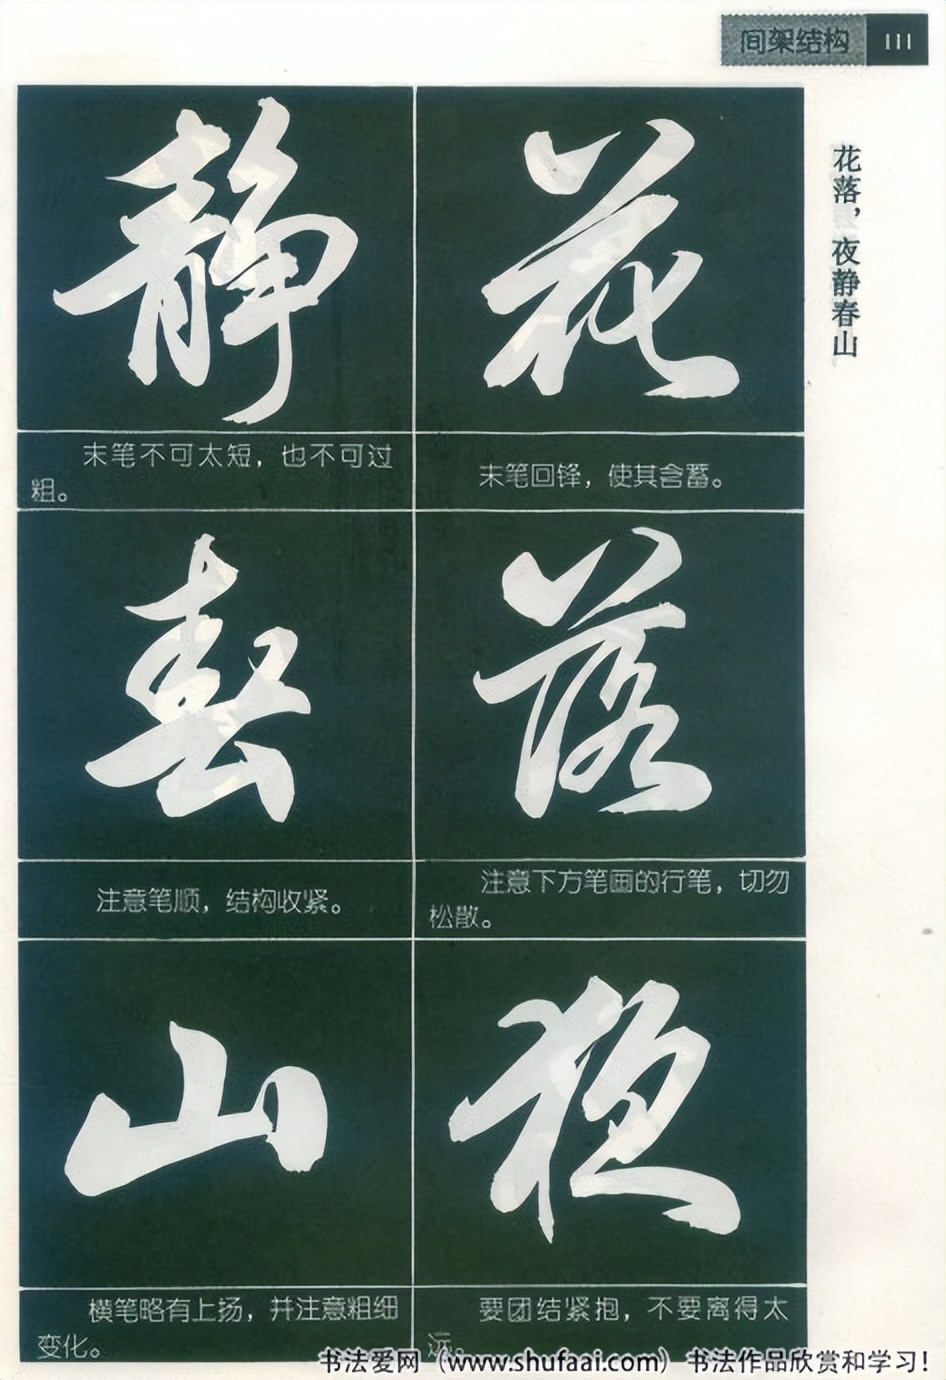 间架结构 111
花落，夜静春山
花
末笔回锋，使其含蓄。
落
注意下方笔画的行笔，切勿
松散。
夜
要团结紧抱，不要离得太
远。
静
末笔不可太短，也不可过
粗。
春
注意笔顺，结构收紧。
山
横笔略有上扬，并注意粗细
变化。
书法爱网（www.shufaai.com）书法作品欣赏和学习！